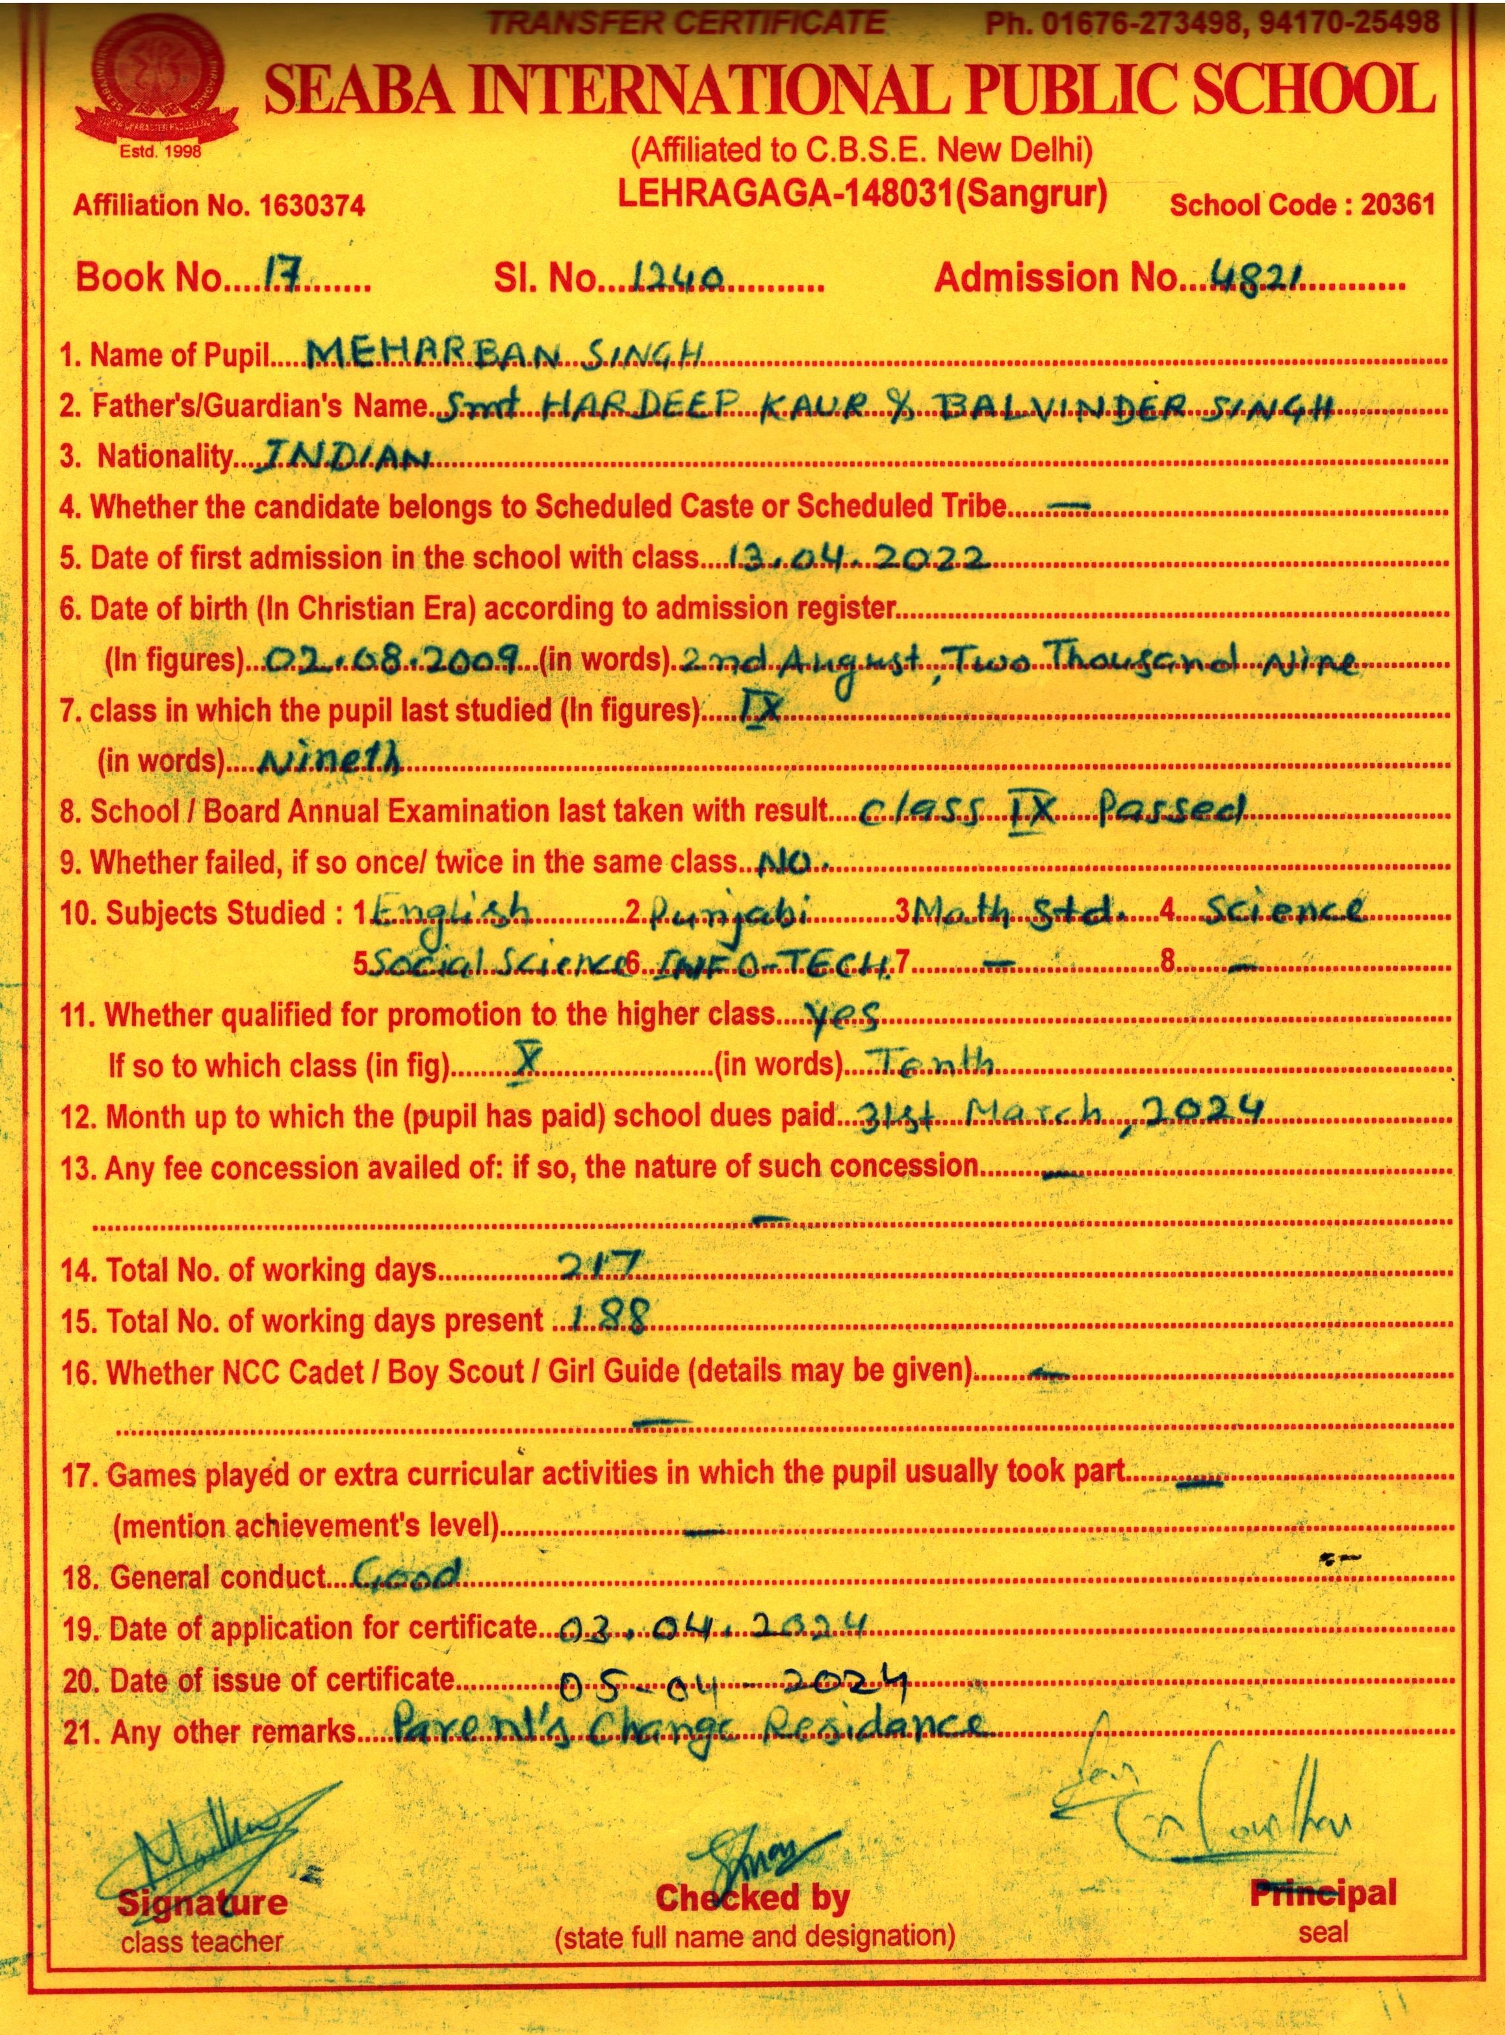 TRANSFER CERTIFICATE Ph. 01676-273498, 94170-25498
SEABA INTERNATIONAL PUBLIC SCHOOL
Estd. 1998
(Affiliated to C.B.S.E. New Delhi)
Affiliation No. 1630374 LEHRAGAGA-148031(Sangrur) School Code : 20361
Book No....17....... Sl. No...1240............ Admission No...4821............
1. Name of Pupil....MEHARBAN SINGH
2. Father's/Guardian's Name..Smt HARDEEP KAUR & BALVINDER SINGH
3. Nationality...INDIAN
4. Whether the candidate belongs to Scheduled Caste or Scheduled Tribe.....—
5. Date of first admission in the school with class....13.04.2022
6. Date of birth (In Christian Era) according to admission register
(In figures)..02.08.2009..(in words).2nd August, Two Thousand Nine
7. class in which the pupil last studied (In figures)....IX
(in words)....Nineth
8. School / Board Annual Examination last taken with result...Class IX Passed
9. Whether failed, if so once/ twice in the same class..NO.
10. Subjects Studied : 1.English 2.Punjabi 3.Math Std. 4.Science
5.Social Science 6.INFO-TECH. 7.— 8.—
11. Whether qualified for promotion to the higher class....yes
If so to which class (in fig).......X.......(in words)...Tenth
12. Month up to which the (pupil has paid) school dues paid...31st March, 2024
13. Any fee concession availed of: if so, the nature of such concession.......—
—
14. Total No. of working days.............217
15. Total No. of working days present ...188
16. Whether NCC Cadet / Boy Scout / Girl Guide (details may be given).......—
—
17. Games played or extra curricular activities in which the pupil usually took part.......—
(mention achievement's level)........—
18. General conduct....Good
19. Date of application for certificate...03.04.2024
20. Date of issue of certificate...........05-04-2024
21. Any other remarks.....Parent's Change Residance
Signature Checked by Principal
class teacher (state full name and designation) seal